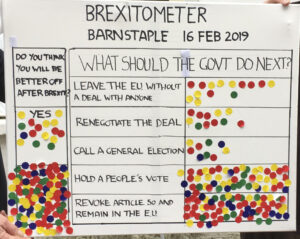 BREXITOMETER
BARNSTAPLE 16 FEB 2019
DO YOU THINK
YOU WILL BE
BETTER OFF
AFTER BREXIT?
YES
WHAT SHOULD THE GOVT DO NEXT?
LEAVE THE EU WITHOUT
A DEAL WITH ANYONE
RENEGOTIATE THE DEAL
CALL A GENERAL ELECTION
HOLD A PEOPLE'S VOTE
REVOKE ARTICLE 50 AND
REMAIN IN THE EU